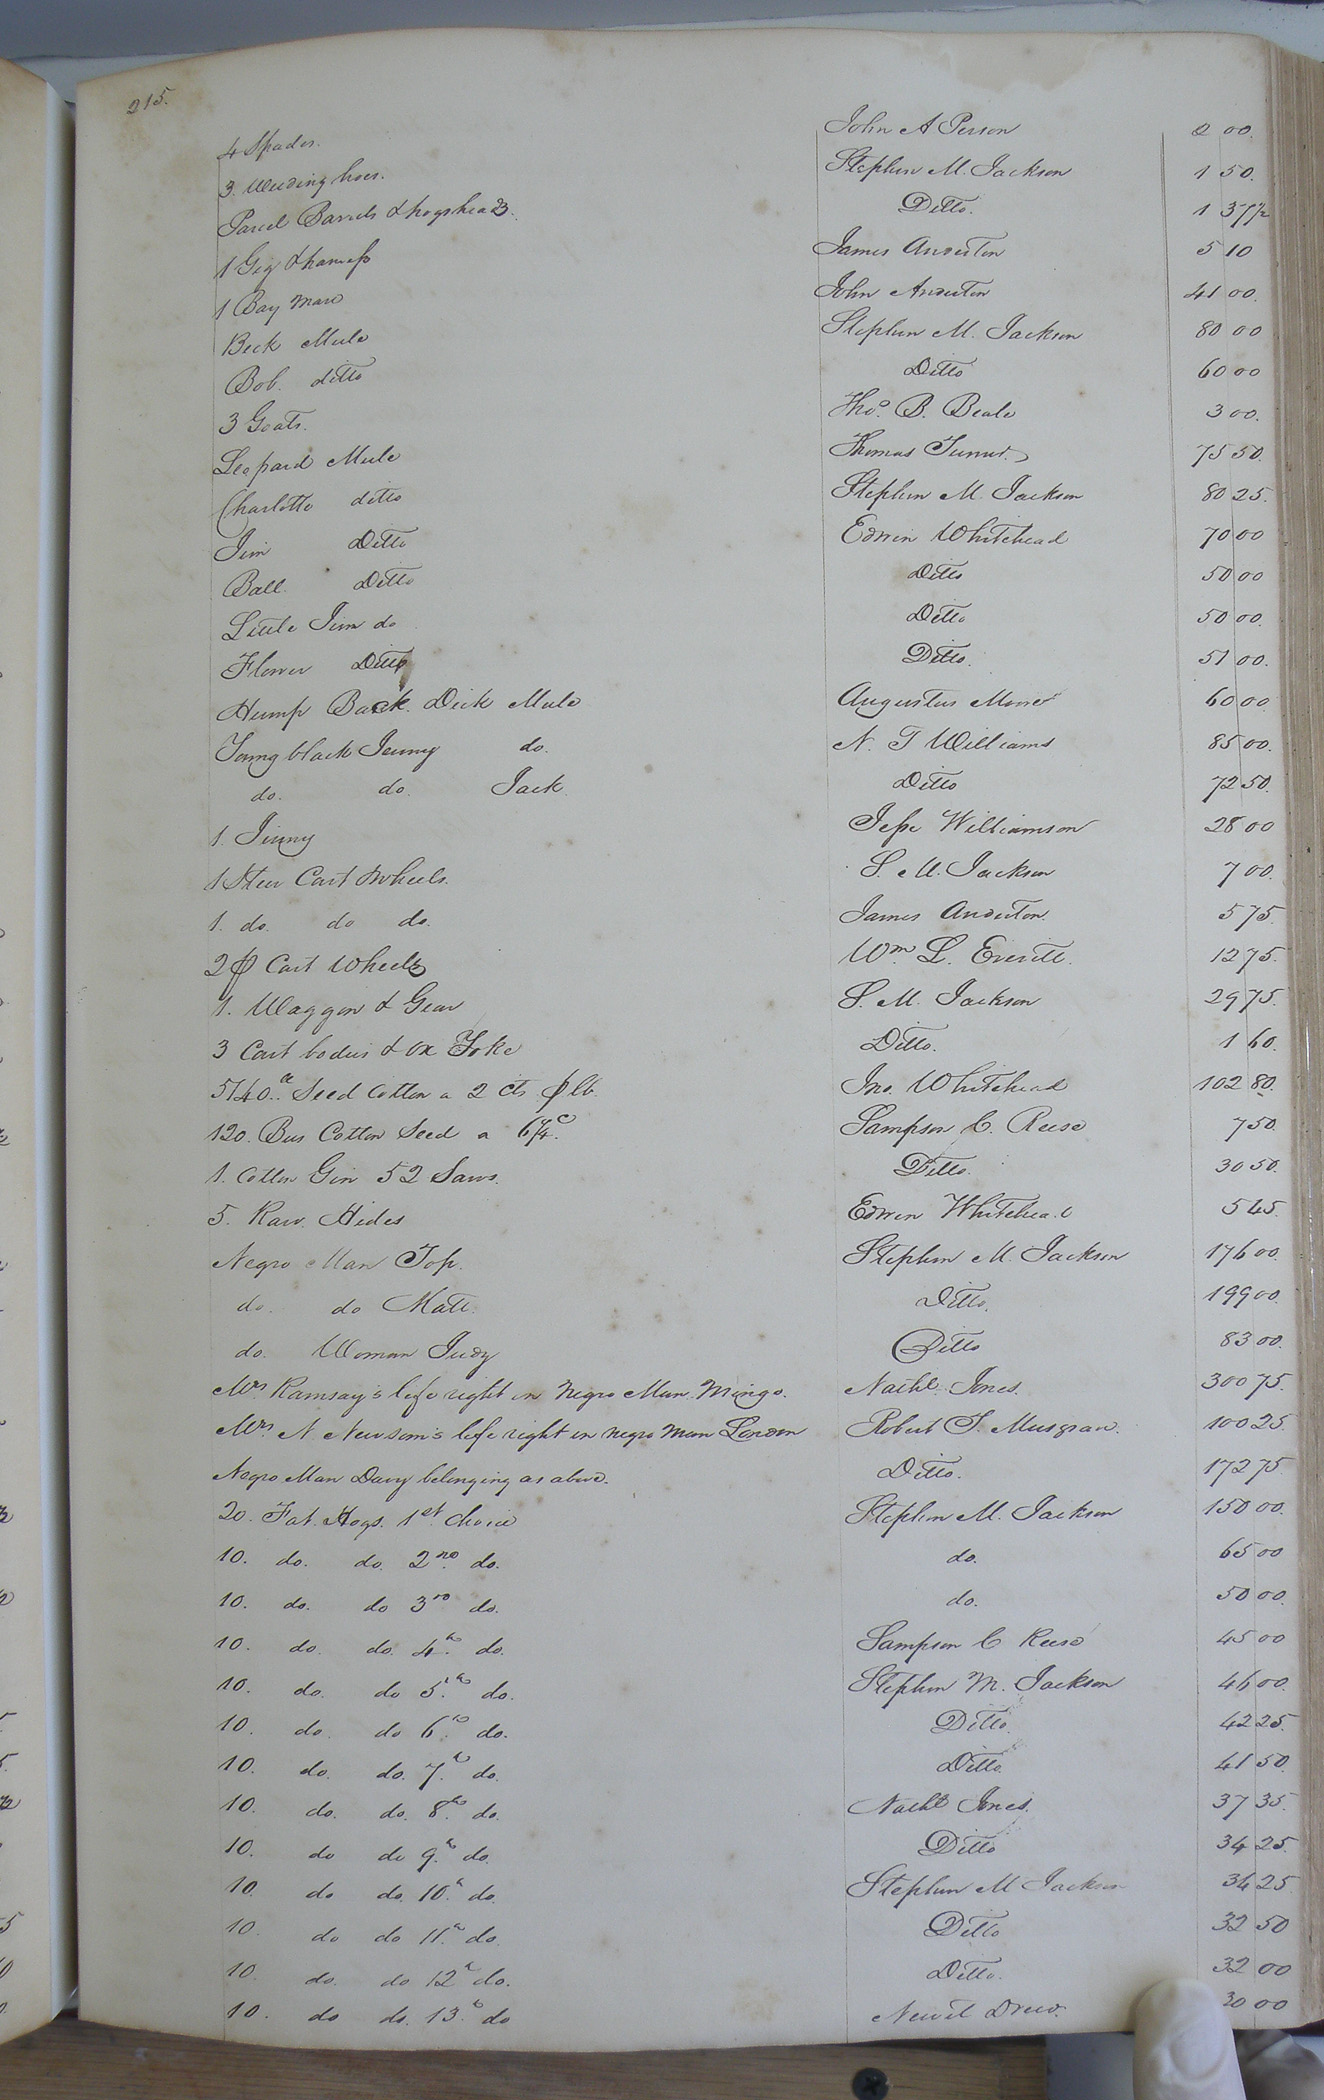 215.
4 Spades. John A Person 2 00.
3. Weeding hoes. Stephen M. Jackson 1 50.
Parcel Barrels & hogsheads. Ditto. 1 37½
1 Gig & harness James Anderton 5 10
1 Bay Mare John Anderton 41 00.
Beck Mule Stephen M. Jackson 80 00
Bob. ditto Ditto 60 00
3 Goats. Tho.s B. Beale 3 00.
Leopard Mule Thomas 75 50.
Charlotte ditto Stephen M. Jackson 80 25.
Jim Ditto Edwin Whitehead 70 00
Ball. Ditto Ditto 50 00
Little Jim do Ditto 50 00.
Flower Ditto Ditto. 51 00.
Hump Back. Dick Mule Augustus 60 00
Young black Jenny do. N. T Williams 85 00.
do. do. Jack. Ditto 72 50.
1. Jinny Jesse Williamson 28 00
1 Steer Cart Wheels. S. M. Jackson 7 00.
1. do. do do. James Anderton. 5 75.
2 Cart Wheels Wm. L. Everitt. 12 75.
1. Waggon & Gear S. M. Jackson 29 75.
3 Cart bodies & ox Yoke Ditto. 1 60.
5140. Seed Cotton a 2 cts. ⅌ lb. Jno. Whitehead 102 80.
120. Bus Cotton Seed a 6¼c. Sampson C. Reese 7 50.
1. Cotton Gin 52 Saws. Ditto. 30 50.
5. Raw. Hides Edwin Whitehead 5 45.
Negro Man Top. Stephen M. Jackson 176 00.
do. do Matt. Ditto. 199 00.
do. Woman Judy Ditto 83 00.
Mrs Ramsay's life right in Negro Man. Mingo. Nathl. Jones. 300 75.
Mrs. N Newsom's life right in negro man London Robert S. Musgrave. 100 25.
Negro Man Davy belonging as above. Ditto. 172 75
20. Fat. Hogs. 1st. Choice Stephen M. Jackson 150 00.
10. do. do. 2nd. do. do. 65 00
10. do. do 3rd do. do. 50 00.
10. do. do. 4th. do. Sampson C Reese 45 00
10. do. do 5.th do. Stephen M. Jackson 46 00.
10. do. do 6.th do. Ditto. 42 25.
10. do. do. 7.th do. Ditto. 41 50.
10. do. do. 8.th do. Nathl Jones. 37 35.
10. do do 9.th do. Ditto 34 25
10. do do. 10.th do. Stephen M Jackson 34 25
10 do do 11.th do. Ditto 32 50
10. do. do 12th do. Ditto. 32 00
10. do do. 13.th do Newit Drew. 30 00